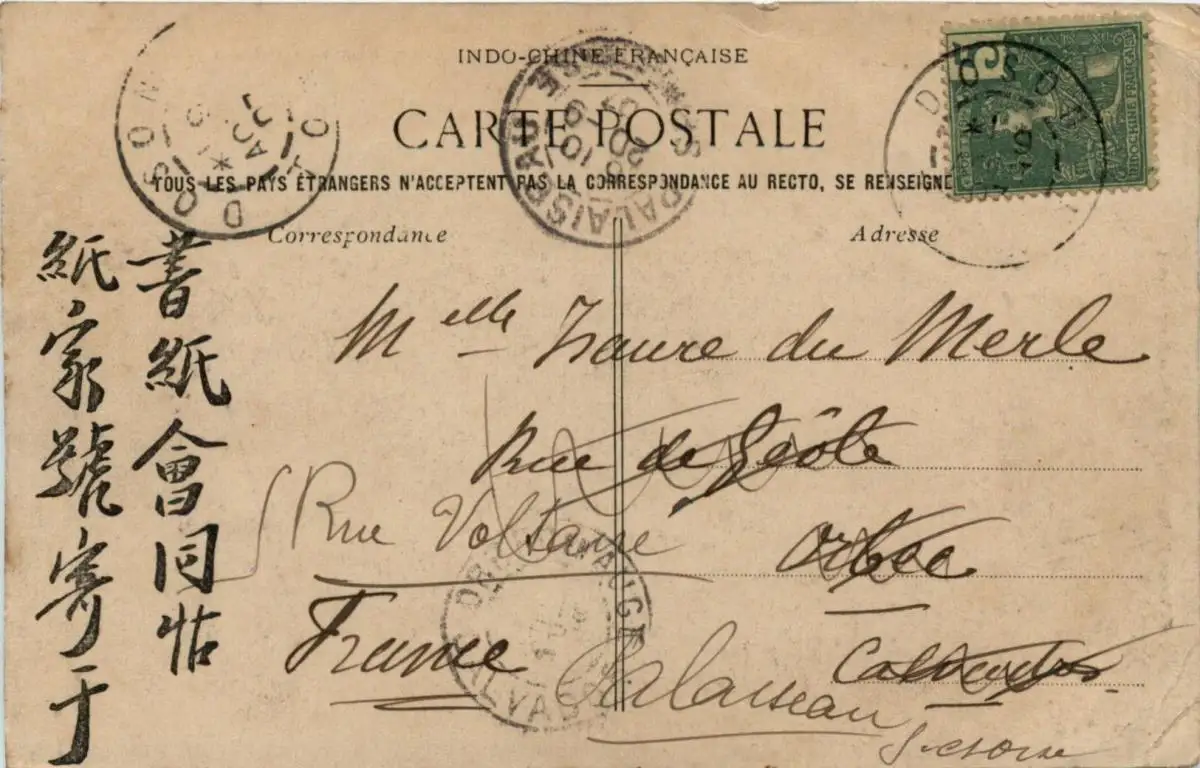 INDO-CHINE FRANÇAISE
CARTE POSTALE
TOUS LES PAYS ÉTRANGERS N'ACCEPTENT PAS LA CORRESPONDANCE AU RECTO, SE RENSEIGNE
Correspondance
Adresse
DOSON
PALAISEAU
S. & OISE
DOSON
5
INDOCHINE FRANÇAISE
書紙會同帖
紙家號寄于
Melle Laure du Merle
Rue de Geôle
Rue Voltaire
Orbec
France
Calvados
Palaiseau
S-et-Oise
ORBEC
CALVADOS